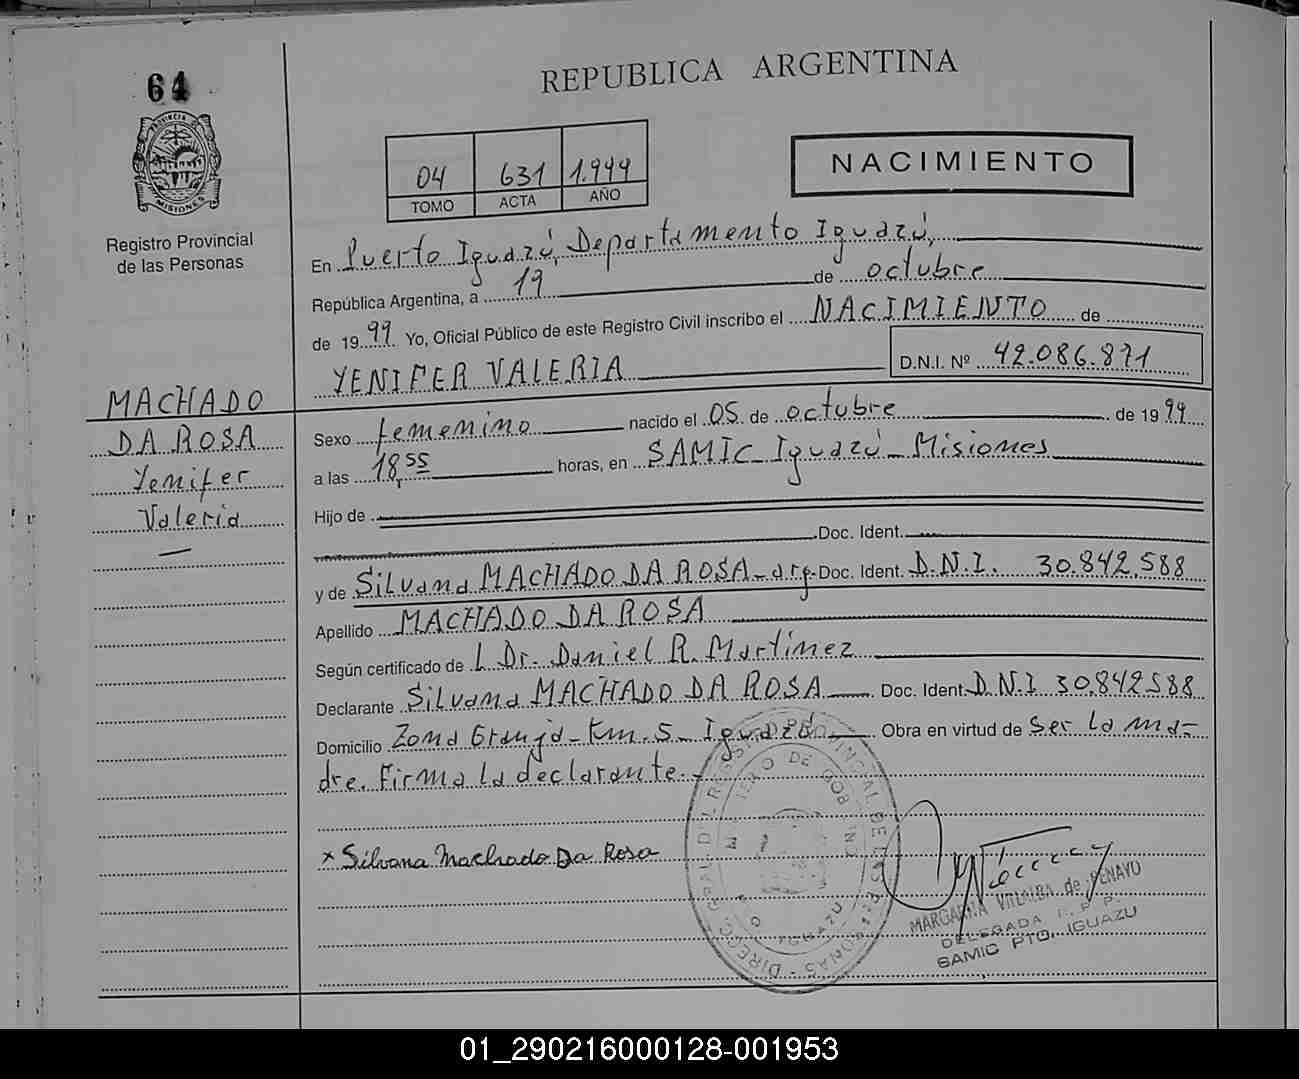 64
REPUBLICA ARGENTINA
PROVINCIA DE
MISIONES
Registro Provincial
de las Personas
04 631 1.999
TOMO ACTA AÑO
NACIMIENTO
En Puerto Iguazú, Departamento Iguazú,
República Argentina, a 19 de octubre
de 1999 Yo, Oficial Público de este Registro Civil inscribo el NACIMIENTO de
YENIFER VALERIA D.N.I. Nº 42.086.871
MACHADO
DA ROSA
Yenifer
Valeria
Sexo femenino nacido el 05 de octubre de 1999
a las 18,55 horas, en SAMIC Iguazú - Misiones
Hijo de
Doc. Ident.
y de Silvana MACHADO DA ROSA - arg. Doc. Ident. D.N.I. 30.842.588
Apellido MACHADO DA ROSA
Según certificado de L Dr. Daniel R. Martinez
Declarante Silvana MACHADO DA ROSA Doc. Ident. D.N.I 30.842588
Domicilio Zona Granja - Km. 5 - Iguazú Obra en virtud de Ser La ma=
dre. Firma la declarante. -
x Silvana Machado Da Rosa
MARGARITA VILLALBA de BENAYO
DELEGADA R. P. P.
SAMIC PTO. IGUAZU
01_290216000128-001953